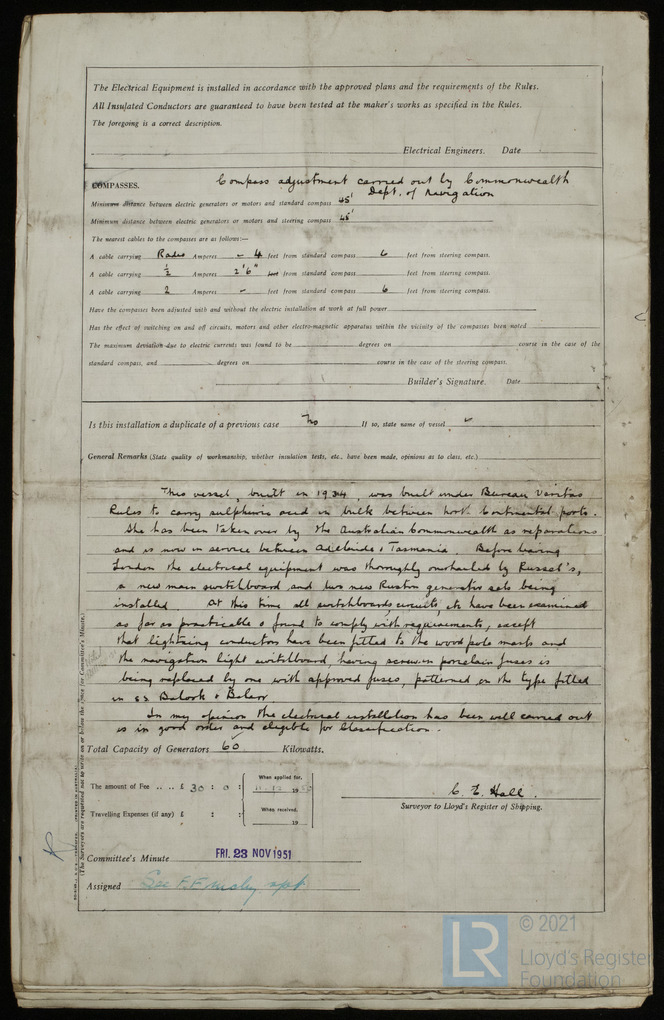 The Electrical Equipment is installed in accordance with the approved plans and the requirements of the Rules.
All Insulated Conductors are guaranteed to have been tested at the maker's works as specified in the Rules.
The foregoing is a correct description.
Electrical Engineers. Date
COMPASSES. Compass adjustment carried out by Commonwealth
Dept. of Navigation
Minimum distance between electric generators or motors and standard compass 45'
Minimum distance between electric generators or motors and steering compass 45'
The nearest cables to the compasses are as follows:—
A cable carrying Radio Amperes - 4 feet from standard compass 6 feet from steering compass.
A cable carrying ½ Amperes 2'6" feet from standard compass feet from steering compass.
A cable carrying 2 Amperes - feet from standard compass 6 feet from steering compass.
Have the compasses been adjusted with and without the electric installation at work at full power
Has the effect of switching on and off circuits, motors and other electro-magnetic apparatus within the vicinity of the compasses been noted
The maximum deviation due to electric currents was found to be degrees on course in the case of the
standard compass, and degrees on course in the case of the steering compass.
Builder's Signature. Date
Is this installation a duplicate of a previous case No If so, state name of vessel
General Remarks (State quality of workmanship, whether insulation tests, etc., have been made, opinions as to class, etc.)
This vessel, built in 1934, was built under Bureau Veritas
Rules to carry sulphuric acid in bulk between North Continental ports.
She has been taken over by the Australian Commonwealth as reparations
and is now in service between Adelaide & Tasmania. Before leaving
London the electrical equipment was thoroughly overhauled by Russel's,
a new main switchboard and two new Ruston generator sets being
installed. At this time all switchboards, circuits, etc have been examined
as far as practicable & found to comply with requirements, except
that lightning conductors have been fitted to the wood pole masts and
the navigation light switchboard, having screw-in porcelain fuses is
being replaced by one with approved fuses, patterned on the type fitted
in ss Balook & Balarr
In my opinion the electrical installation has been well carried out
is in good order and eligible for Classification.
Total Capacity of Generators 60 Kilowatts.
The amount of Fee .. .. £ 30 : 0 : When applied for, 19
Travelling Expenses (if any) £ : : When received, 19
C. E. Hall.
Surveyor to Lloyd's Register of Shipping.
Committee's Minute FRI. 23 NOV 1951
Assigned See F.E.
(The Surveyors are requested not to write on or below the space for Committee's Minute.)
LR © 2021
Lloyd's Register
Foundation